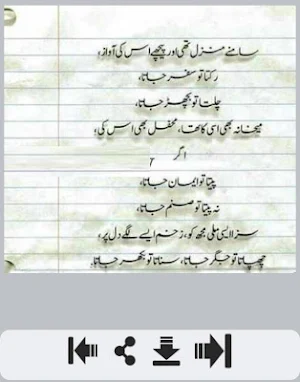 سامنے منزل تھی اور پیچھے اس کی آواز،
رکتا تو سفر جاتا،
چلتا تو بچھڑ جاتا،
میخانہ بھی اسی کا تھا، محفل بھی اس کی؛
اگر
پیتا تو ایمان جاتا،
نہ پیتا تو صنم جاتا،
سزا ایسی ملی مجھ کو، زخم ایسے لگے دل پر،
چھپاتا تو جگر جاتا، سناتا تو بکھر جاتا،